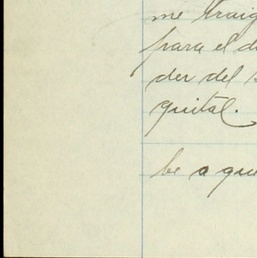 me traig
para el d
der del s
quital.
be a que